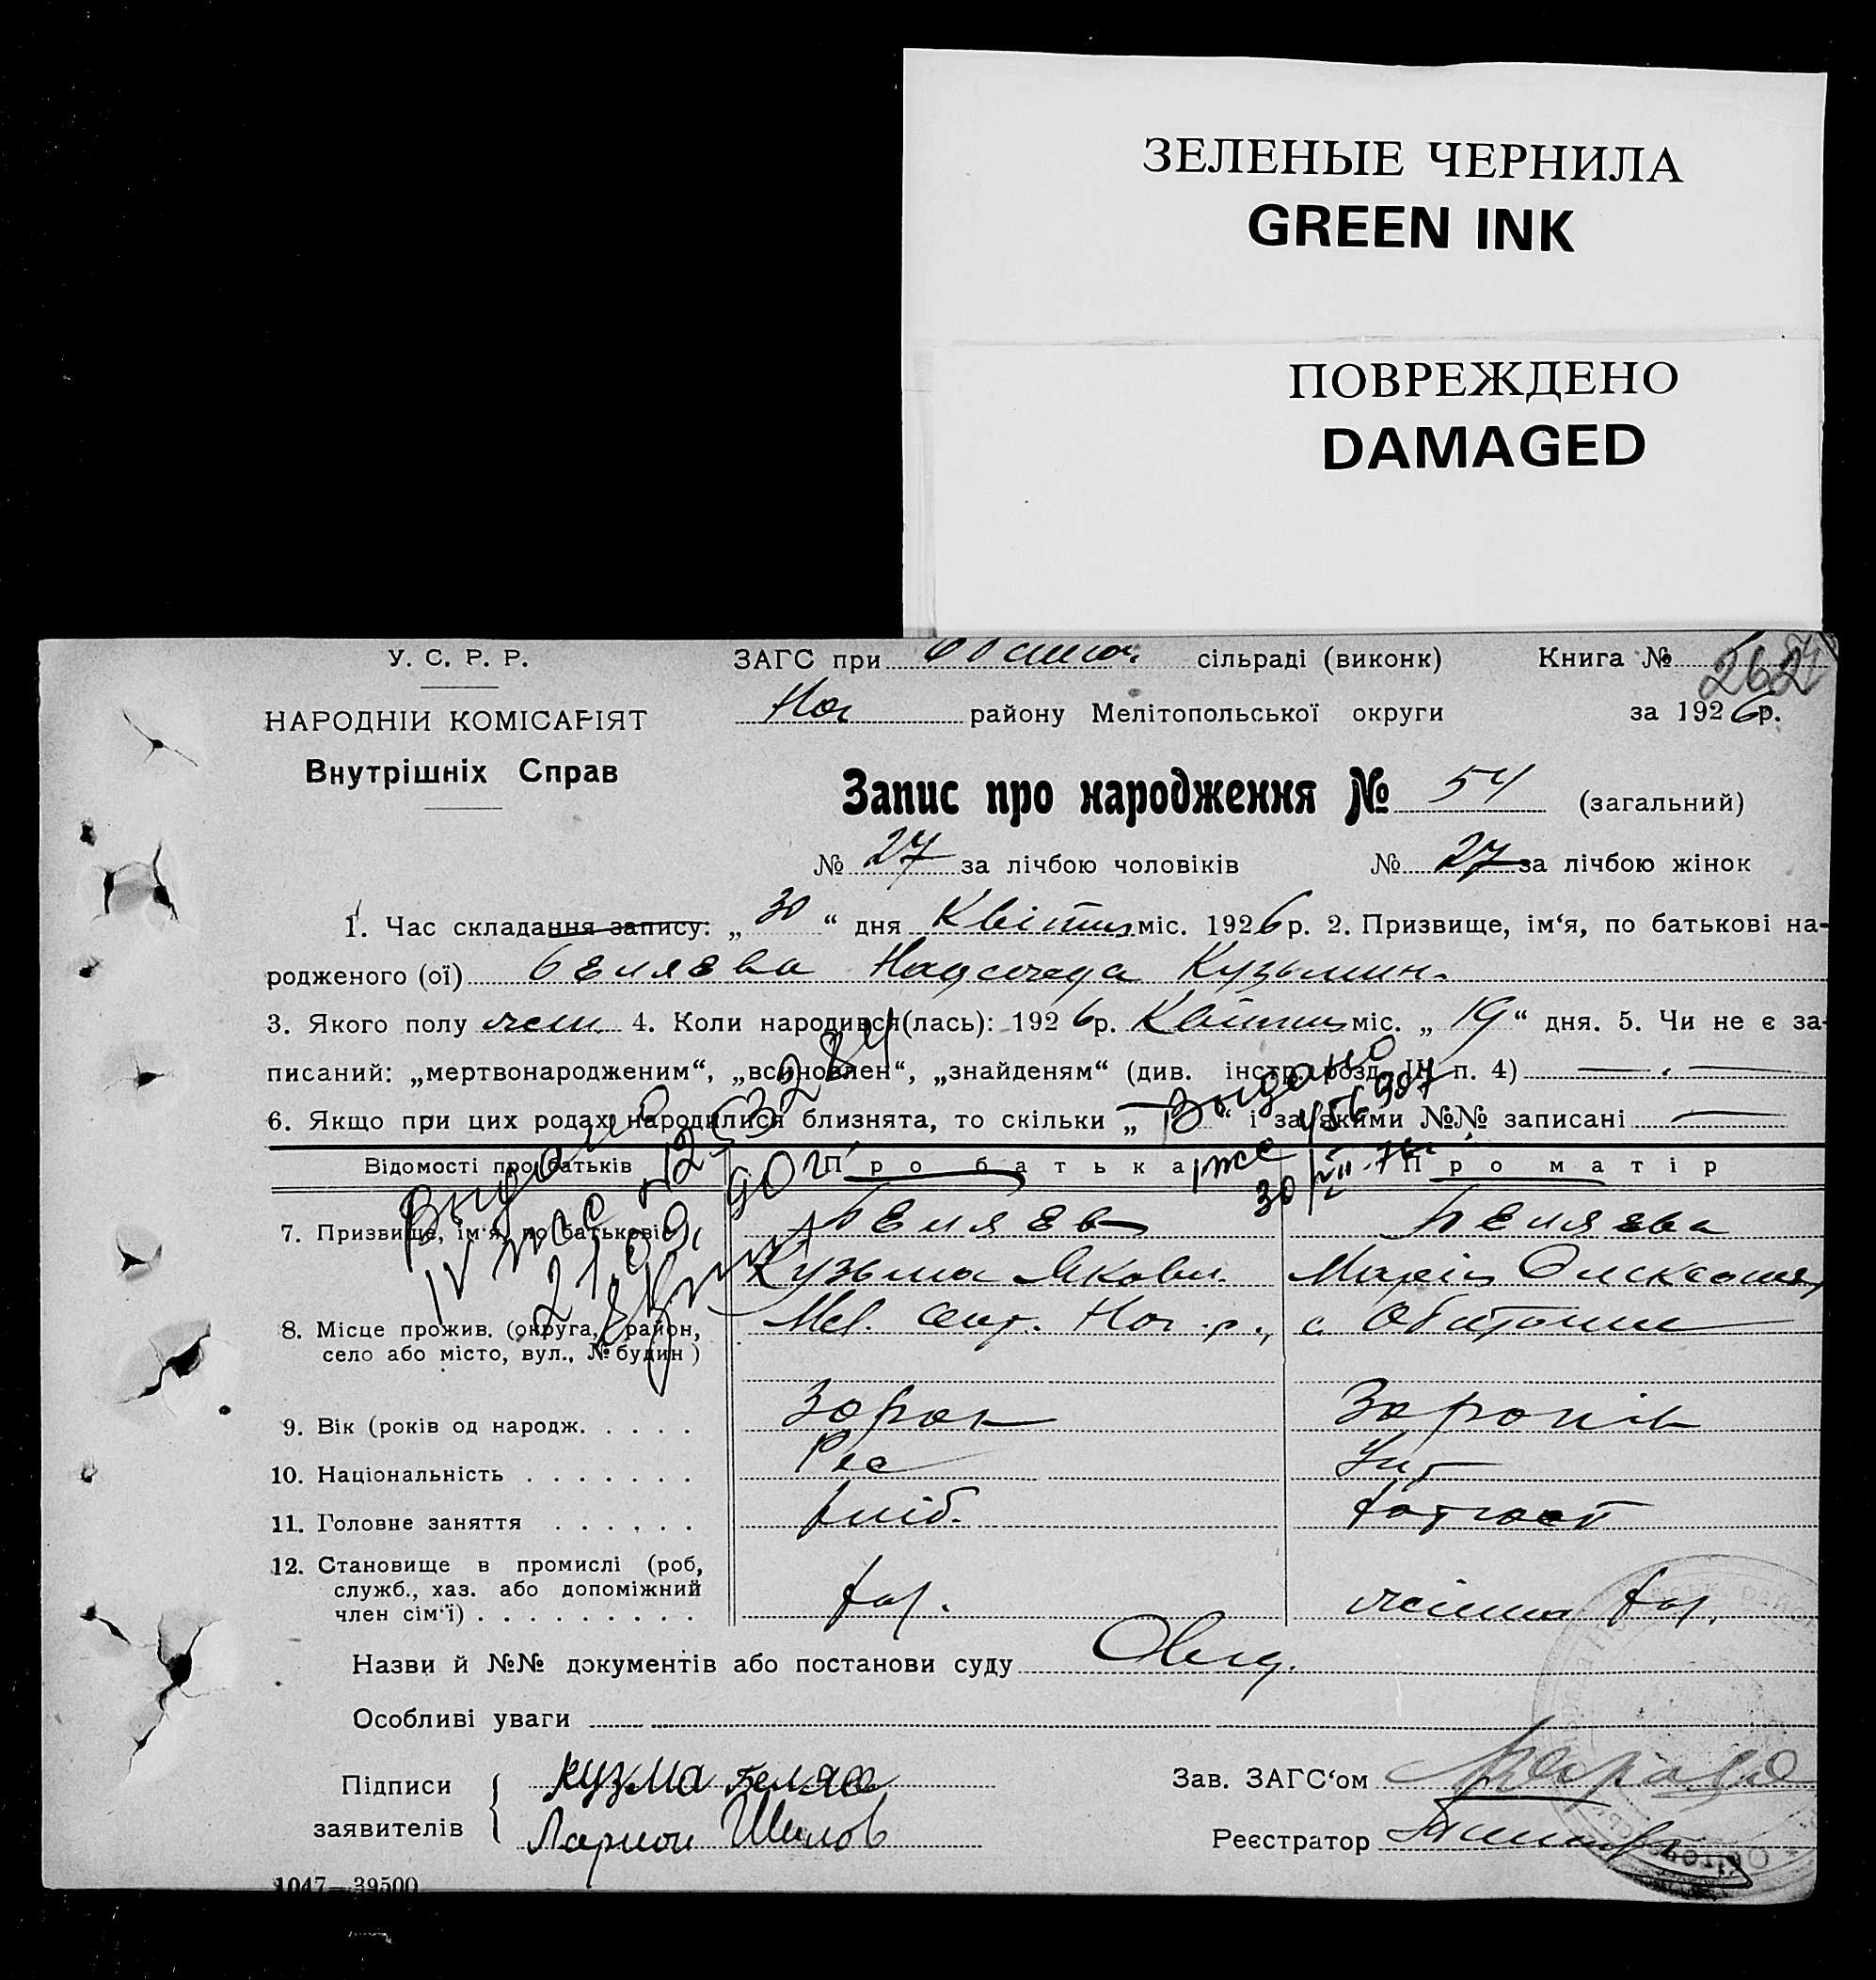 ЗЕЛЕНЫЕ ЧЕРНИЛА
GREEN INK
ПОВРЕЖДЕНО
DAMAGED
У. С. Р. Р. ЗАГС при сільраді (виконк) Книга №
262
НАРОДНІЙ КОМІСАРІЯТ Ног району Мелітопольської округи за 1926 р.
Внутрішніх Справ
Запис про народження № 54 (загальний)
№ 27 за лічбою чоловіків № 27 за лічбою жінок
1. Час складання запису: „ 30 “ дня Квітня міс. 1926 р. 2. Призвище, ім‘я, по батькові на-
родженого (ої) Беляева Надежда Кузьмин.
3. Якого полу жен. 4. Коли народився(лась): 1926 р. Квітня міс. „ 19 “ дня. 5. Чи не є за-
писаний: „мертвонародженим“, „всиновлен“, „знайденям“ (див. інстр. розд. IV п. 4)
6. Якщо при цих родах народилися близнята, то скільки „ “ і за якими №№ записані
Відомості про батьків Про батька Про матір
7. Призвище, ім‘я, по батькові Беляев Беляева
Кузьма Якови. Марія
8. Місце прожив. (округа, район, Мел. окр. Ног р., с Обіточне
село або місто, вул., № будин)
9. Вік (років од народж. 30 рок 30 років
10. Національність Рос Укр
11. Головне заняття хліб.
12. Становище в промислі (роб,
служб., хаз. або допоміжний
член сім‘ї) хаз. жінка хаз.
Назви й №№ документів або постанови суду
Особливі уваги
Підписи кузма Беляев Зав. ЗАГС‘ом
заявителів Ларион Шилов Реєстратор
1047—39500